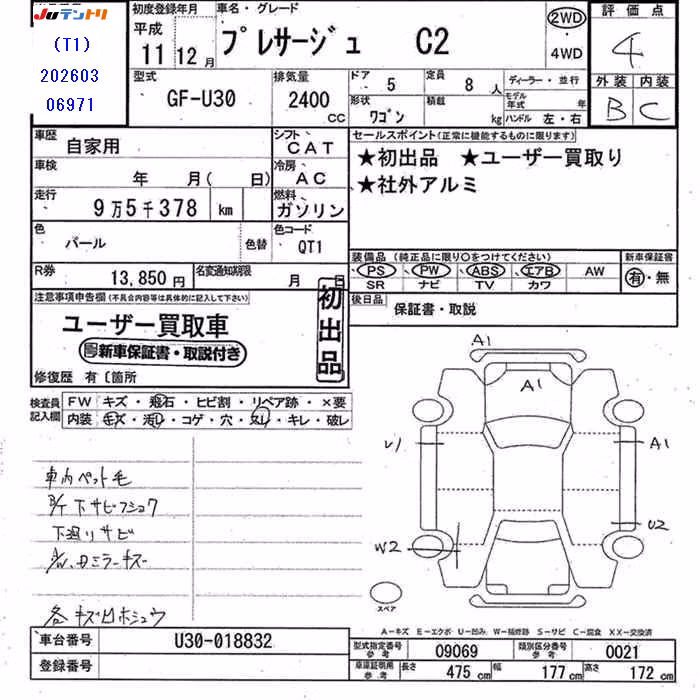 JUテントリ
(T1)
202603
06971
初度登録年月
平成 11年 12月
車名・グレード
プレサージュ C2
2WD
・
4WD
評価点
4
外装 内装
B C
型式
GF-U30
排気量
2400 CC
ドア 5
定員 8 人
形状 ワゴン
積載 kg
ディーラー・並行
モデル年式 年
ハンドル 左・右
車歴 自家用
シフト CAT
車検 年 月( 日)
冷房 AC
走行 9万5千378 km
燃料 ガソリン
色 パール
色替
色コード QT1
R券 13,850円
名変通知期限 月 日
セールスポイント(正常に機能するものに限ります)
★初出品 ★ユーザー買取り
★社外アルミ
装備品 (純正品に限り○をつけてください)
PS PW ABS エアB AW
SR ナビ TV カワ
新車保証書
有・無
後日品 保証書・取説
注意事項申告欄(不具合内容等は具体的に記入して下さい)
ユーザー買取車
新車保証書・取説付き
初出品
修復歴 有〔箇所
検査員記入欄
FW キズ・飛石・ヒビ割・リペア跡・×要
内装 キズ・汚レ・コゲ・穴・ヌレ・キレ・破レ
車内ペット毛
下サビフショク
下廻リサビ
ミラーキズ
各キズ凹ホシュウ
A1
A1
U1
A1
U2
W2
スペア
A－キズ E－エクボ U－凹み W－補修跡 S－サビ C－腐食 XX－交換済
車台番号 U30-018832
登録番号
型式指定番号 参考 09069
類別区分番号 参考 0021
車庫証明用 参考 長さ 475 cm 幅 177 cm 高さ 172 cm